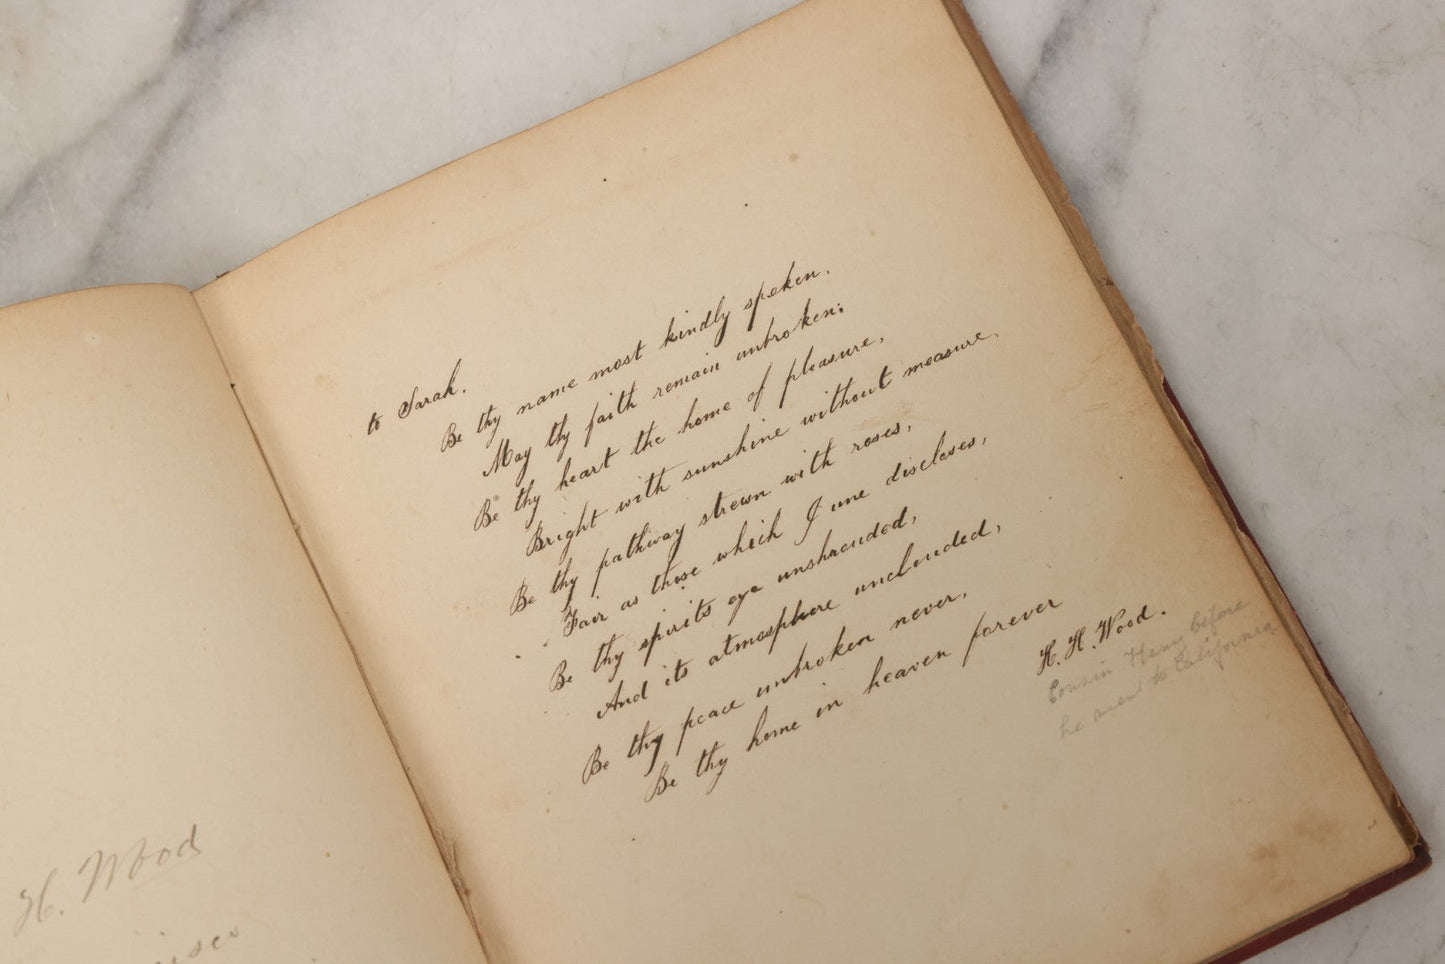 H. Wood
to Sarah.
Be thy name most kindly spoken.
May thy faith remain unbroken;
Be thy heart the home of pleasure,
Bright with sunshine without measure,
Be thy pathway strewn with roses,
Fair as those which June discloses,
Be thy spirits eye unshrouded,
And its atmosphere unclouded,
Be thy peace unbroken never,
Be thy home in heaven forever
H. H. Wood.
Cousin Henry before
he went to California